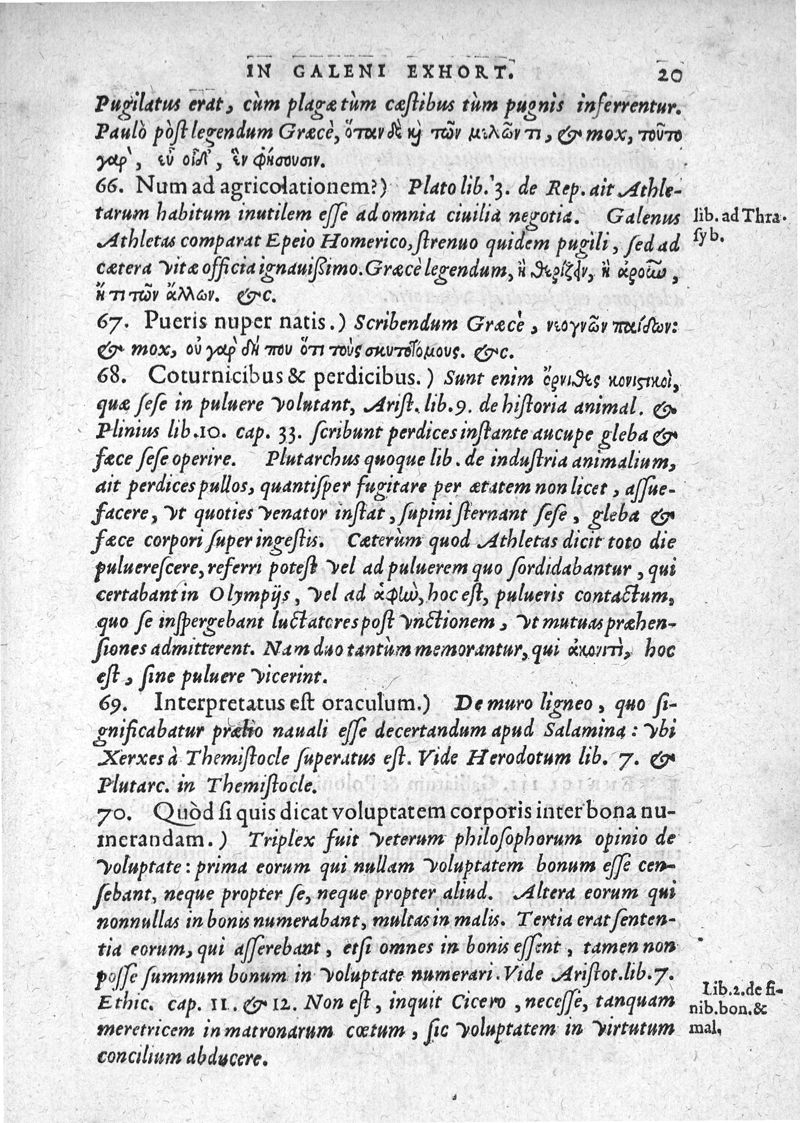 IN GALENI EXHORT. 20
Pugilatus erat, cùm plagæ tùm cæstibus tùm pugnis inferrentur.
Paulò pòst legendum Græcè, ὅταν δὲ κὴ τῶν μιλῶν τι, & mox, τοῦτο
γαρ̀, εὖ οἶδ', ἓν φήσουσιν.
66. Num ad agricolationem?) Plato lib. 3. de Rep. ait Athle-
tarum habitum inutilem esse ad omnia ciuilia negotia. Galenus
lib. ad Thra-
syb.
Athletas comparat Epeio Homerico, strenuo quidem pugili, sed ad
cætera vitæ officia ignauissimo. Græcè legendum, ἢ θερίζειν, ἢ ἀροῶν,
ἤ τι τῶν ἄλλων. &c.
67. Pueris nuper natis.) Scribendum Græcè, νεογνῶν παίδων:
& mox, οὐ γαρ̀ δή που ὅτι τοὺς σκυτοτόμους. &c.
68. Coturnicibus & perdicibus.) Sunt enim ὄρνιθες κονιστικοὶ,
quæ sese in puluere volutant, Arist. lib. 9. de historia animal. &
Plinius lib. 10. cap. 33. scribunt perdices instante aucupe gleba &
fæce sese operire. Plutarchus quoque lib. de industria animalium,
ait perdices pullos, quantisper fugitare per ætatem non licet, assue-
facere, vt quoties venator instat, supini sternant sese, gleba &
fæce corpori superingestis. Cæterùm quod Athletas dicit toto die
puluerescere, referri potest vel ad puluerem quo sordidabantur, qui
certabant in Olympijs, vel ad ἁφὼ, hoc est, pulueris contactum,
quo se inspergebant luctatores post vnctionem, vt mutuas præhen-
siones admitterent. Nam duo tantùm memorantur, qui ἀκονιτὶ, hoc
est, sine puluere vicerint.
69. Interpretatus est oraculum.) De muro ligneo, quo si-
gnificabatur prælio nauali esse decertandum apud Salamina: vbi
Xerxes à Themistocle superatus est. Vide Herodotum lib. 7. &
Plutarc. in Themistocle.
70. Quòd si quis dicat voluptatem corporis inter bona nu-
merandam.) Triplex fuit veterum philosophorum opinio de
voluptate: prima eorum qui nullam voluptatem bonum esse cen-
sebant, neque propter se, neque propter aliud. Altera eorum qui
nonnullas in bonis numerabant, multas in malis. Tertia erat senten-
tia eorum, qui asserebant, etsi omnes in bonis essent, tamen non
posse summum bonum in voluptate numerari. Vide Aristot. lib. 7.
Ethic. cap. 11. & 12. Non est, inquit Cicero, necesse, tanquam
Lib. 2. de fi-
nib. bon. &
mal.
meretricem in matronarum cœtum, sic voluptatem in virtutum
concilium abducere.